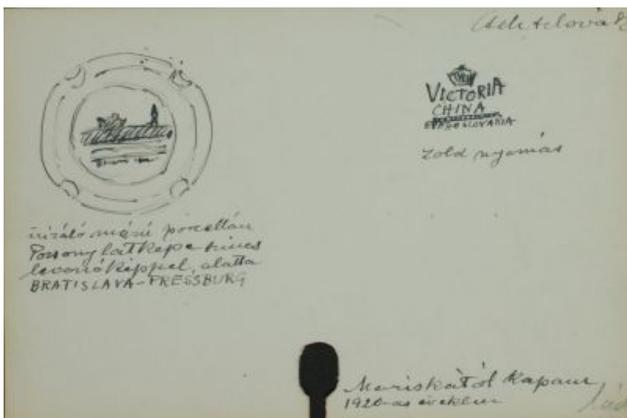 VICTORIA
CHINA
CZECHOSLOVAKIA
zöld nyomás
irizáló mázú porcellán
Pozsony látképe színes
levonóképpel, alatta
BRATISLAVA-PRESSBURG
Mariskától kaptam
1920-as években